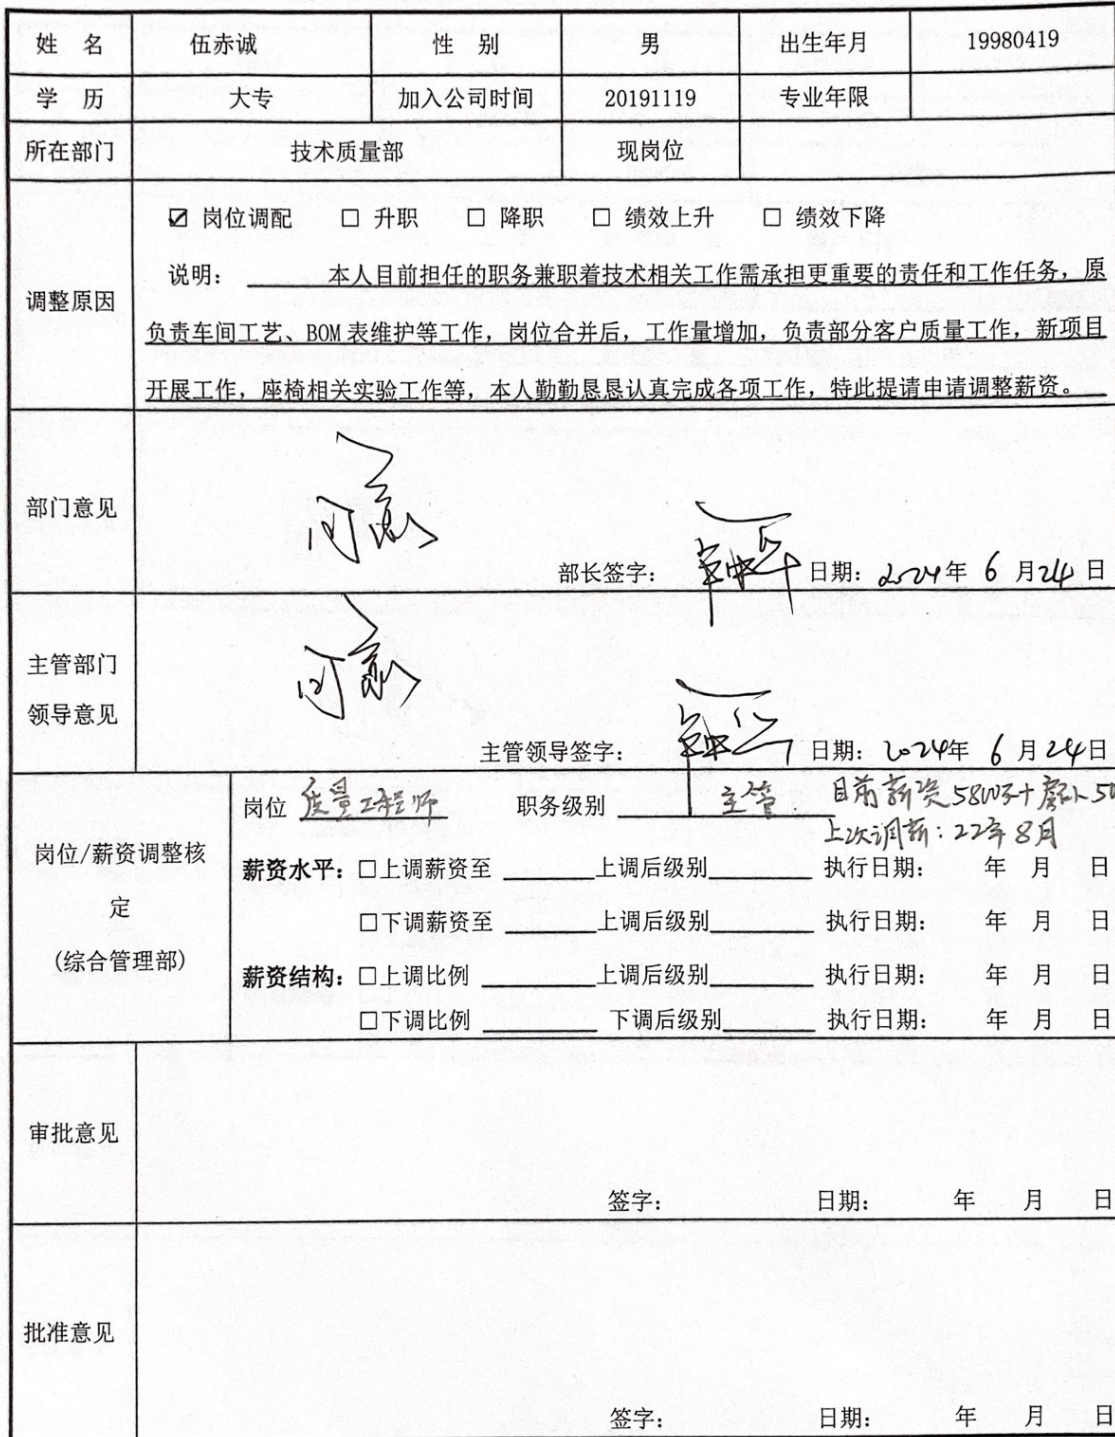 姓 名 伍赤诚 性 别 男 出生年月 19980419
学 历 大专 加入公司时间 20191119 专业年限
所在部门 技术质量部 现岗位
调整原因
☑ 岗位调配 □ 升职 □ 降职 □ 绩效上升 □ 绩效下降
说明: 本人目前担任的职务兼职着技术相关工作需承担更重要的责任和工作任务,原
负责车间工艺、BOM 表维护等工作,岗位合并后,工作量增加,负责部分客户质量工作,新项目
开展工作,座椅相关实验工作等,本人勤勤恳恳认真完成各项工作,特此提请申请调整薪资。
部门意见
同意
部长签字: 日期: 2024年 6 月 24 日
主管部门
领导意见
同意
主管领导签字: 日期: 2024年 6 月 24 日
岗位/薪资调整核
定
(综合管理部)
岗位 质量工程师 职务级别 主管 目前薪资 5800
上次调薪:22年8月
薪资水平:□上调薪资至 上调后级别 执行日期: 年 月 日
□下调薪资至 上调后级别 执行日期: 年 月 日
薪资结构:□上调比例 上调后级别 执行日期: 年 月 日
□下调比例 下调后级别 执行日期: 年 月 日
审批意见
签字: 日期: 年 月 日
批准意见
签字: 日期: 年 月 日